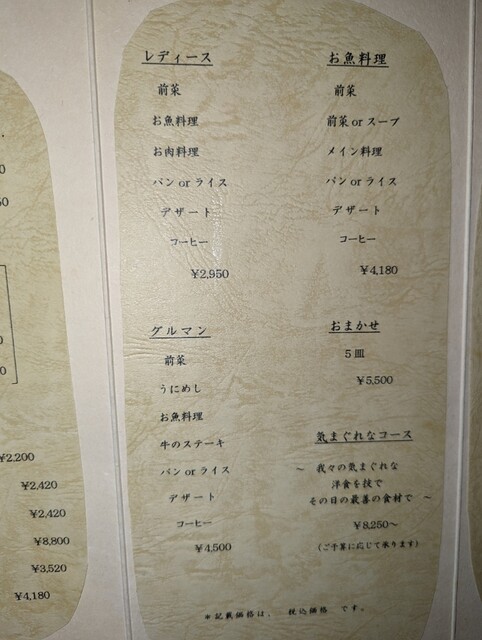 レディース
前菜
お魚料理
お肉料理
パン or ライス
デザート
コーヒー
¥2,950
グルマン
前菜
うにめし
お魚料理
牛のステーキ
パン or ライス
デザート
コーヒー
¥4,500
お魚料理
前菜
前菜 or スープ
メイン料理
パン or ライス
デザート
コーヒー
¥4,180
おまかせ
5皿
¥5,500
気まぐれなコース
～ 我々の気まぐれな
洋食を技で
その日の最善の食材で ～
¥8,250～
(ご予算に応じて承ります)
※記載価格は、 税込価格 です。
¥2,200
¥2,420
¥2,420
¥8,800
¥3,520
¥4,180